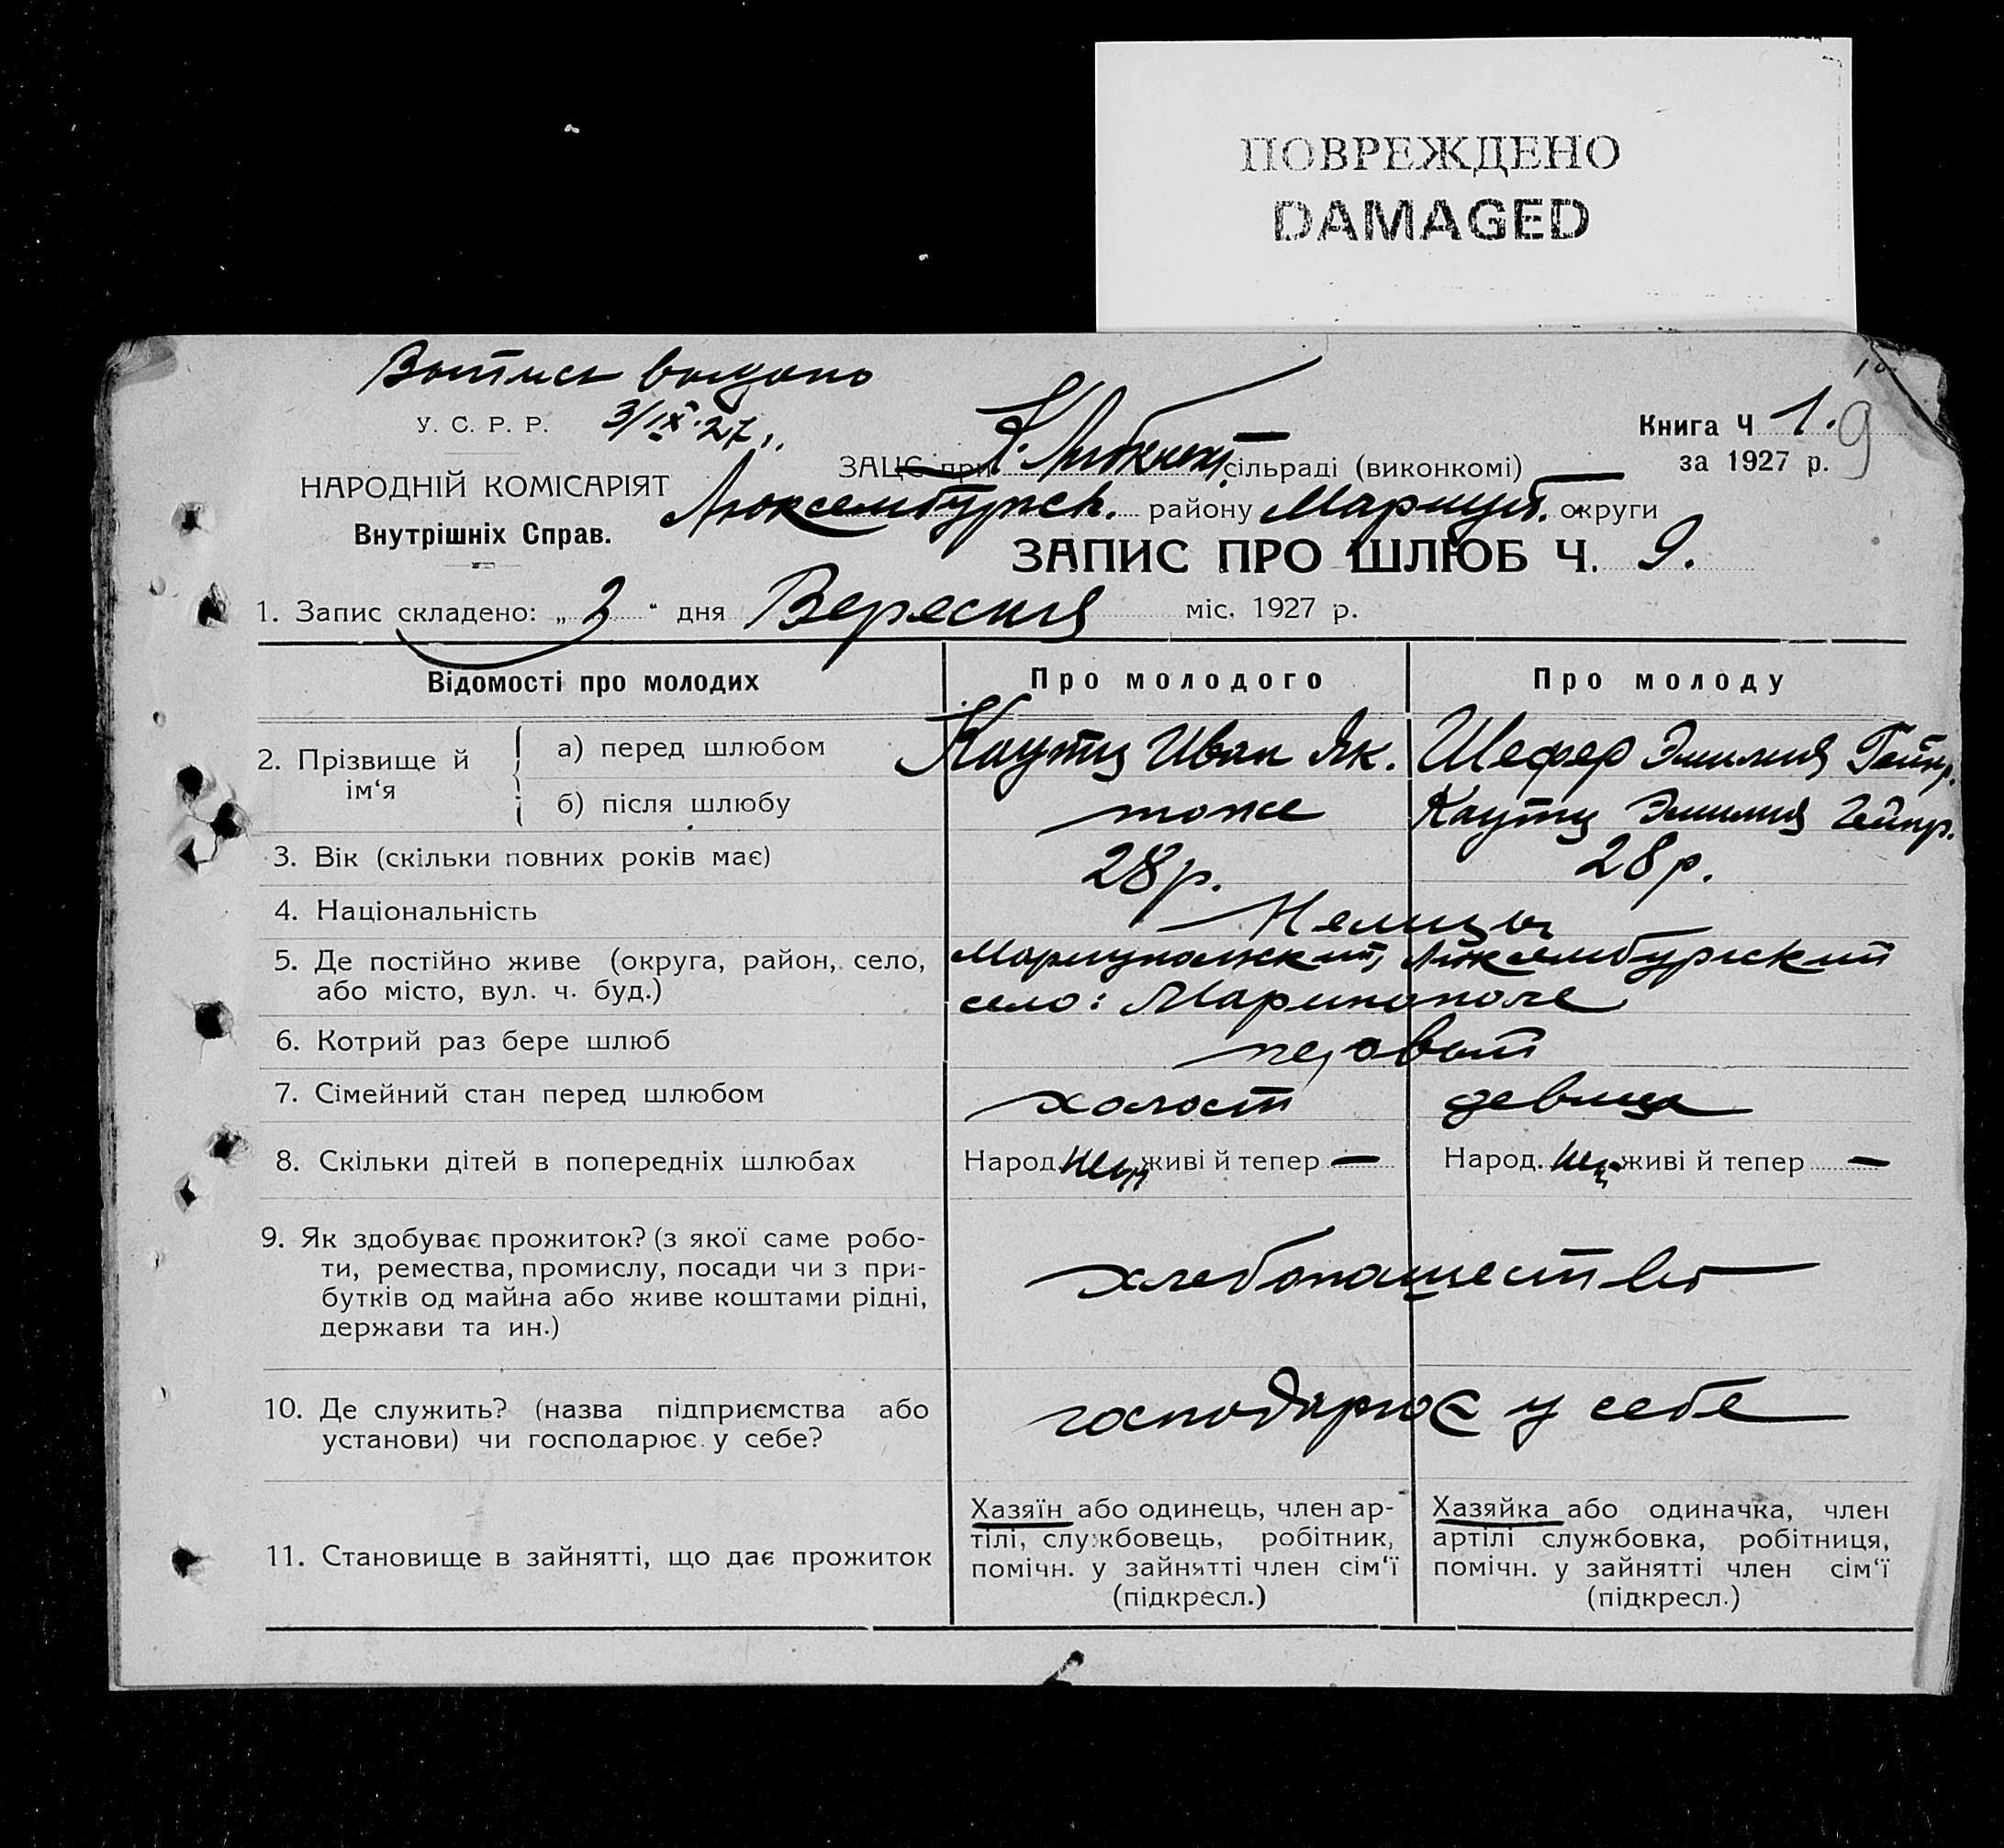 ПОВРЕЖДЕНО
DAMAGED
Витись видано
У. С. Р. Р. 3/IX.27.
Книга Ч 1. 9
ЗАЦС при К. Либкнехт. сільраді (виконкомі)
за 1927 р.
НАРОДНІЙ КОМІСАРІЯТ
Люксембургск. району Мариуп. округи
Внутрішніх Справ.
ЗАПИС ПРО ШЛЮБ Ч. 9.
1. Запис складено: „3“ дня Вересня міс. 1927 р.
Відомості про молодих Про молодого Про молоду
2. Прізвище й ім‘я
а) перед шлюбом Каутц Иван Як. Шефер Эмилия Гейнр.
б) після шлюбу тоже Каутц Эмилия Гейнр.
3. Вік (скільки повних років має) 28 р. 28 р.
4. Національність Немцы
5. Де постійно живе (округа, район, село, Мариупольский, Люксембургский
або місто, вул. ч. буд.) село: Маринополе
6. Котрий раз бере шлюб первый
7. Сімейний стан перед шлюбом холост девица
8. Скільки дітей в попередніх шлюбах Народ. живі й тепер — Народ. живі й тепер —
9. Як здобуває прожиток? (з якої саме робо-
ти, ремества, промислу, посади чи з при- хлебопашество
бутків од майна або живе коштами рідні,
держави та ин.)
10. Де служить? (назва підприємства або господарює у себе
установи) чи господарює у себе?
11. Становище в зайнятті, що дає прожиток
Хазяїн або одинець, член ар-
тілі, службовець, робітник,
помічн. у зайнятті член сім‘ї
(підкресл.)
Хазяйка або одиначка, член
артілі службовка, робітниця,
помічн. у зайнятті член сім‘ї
(підкресл.)